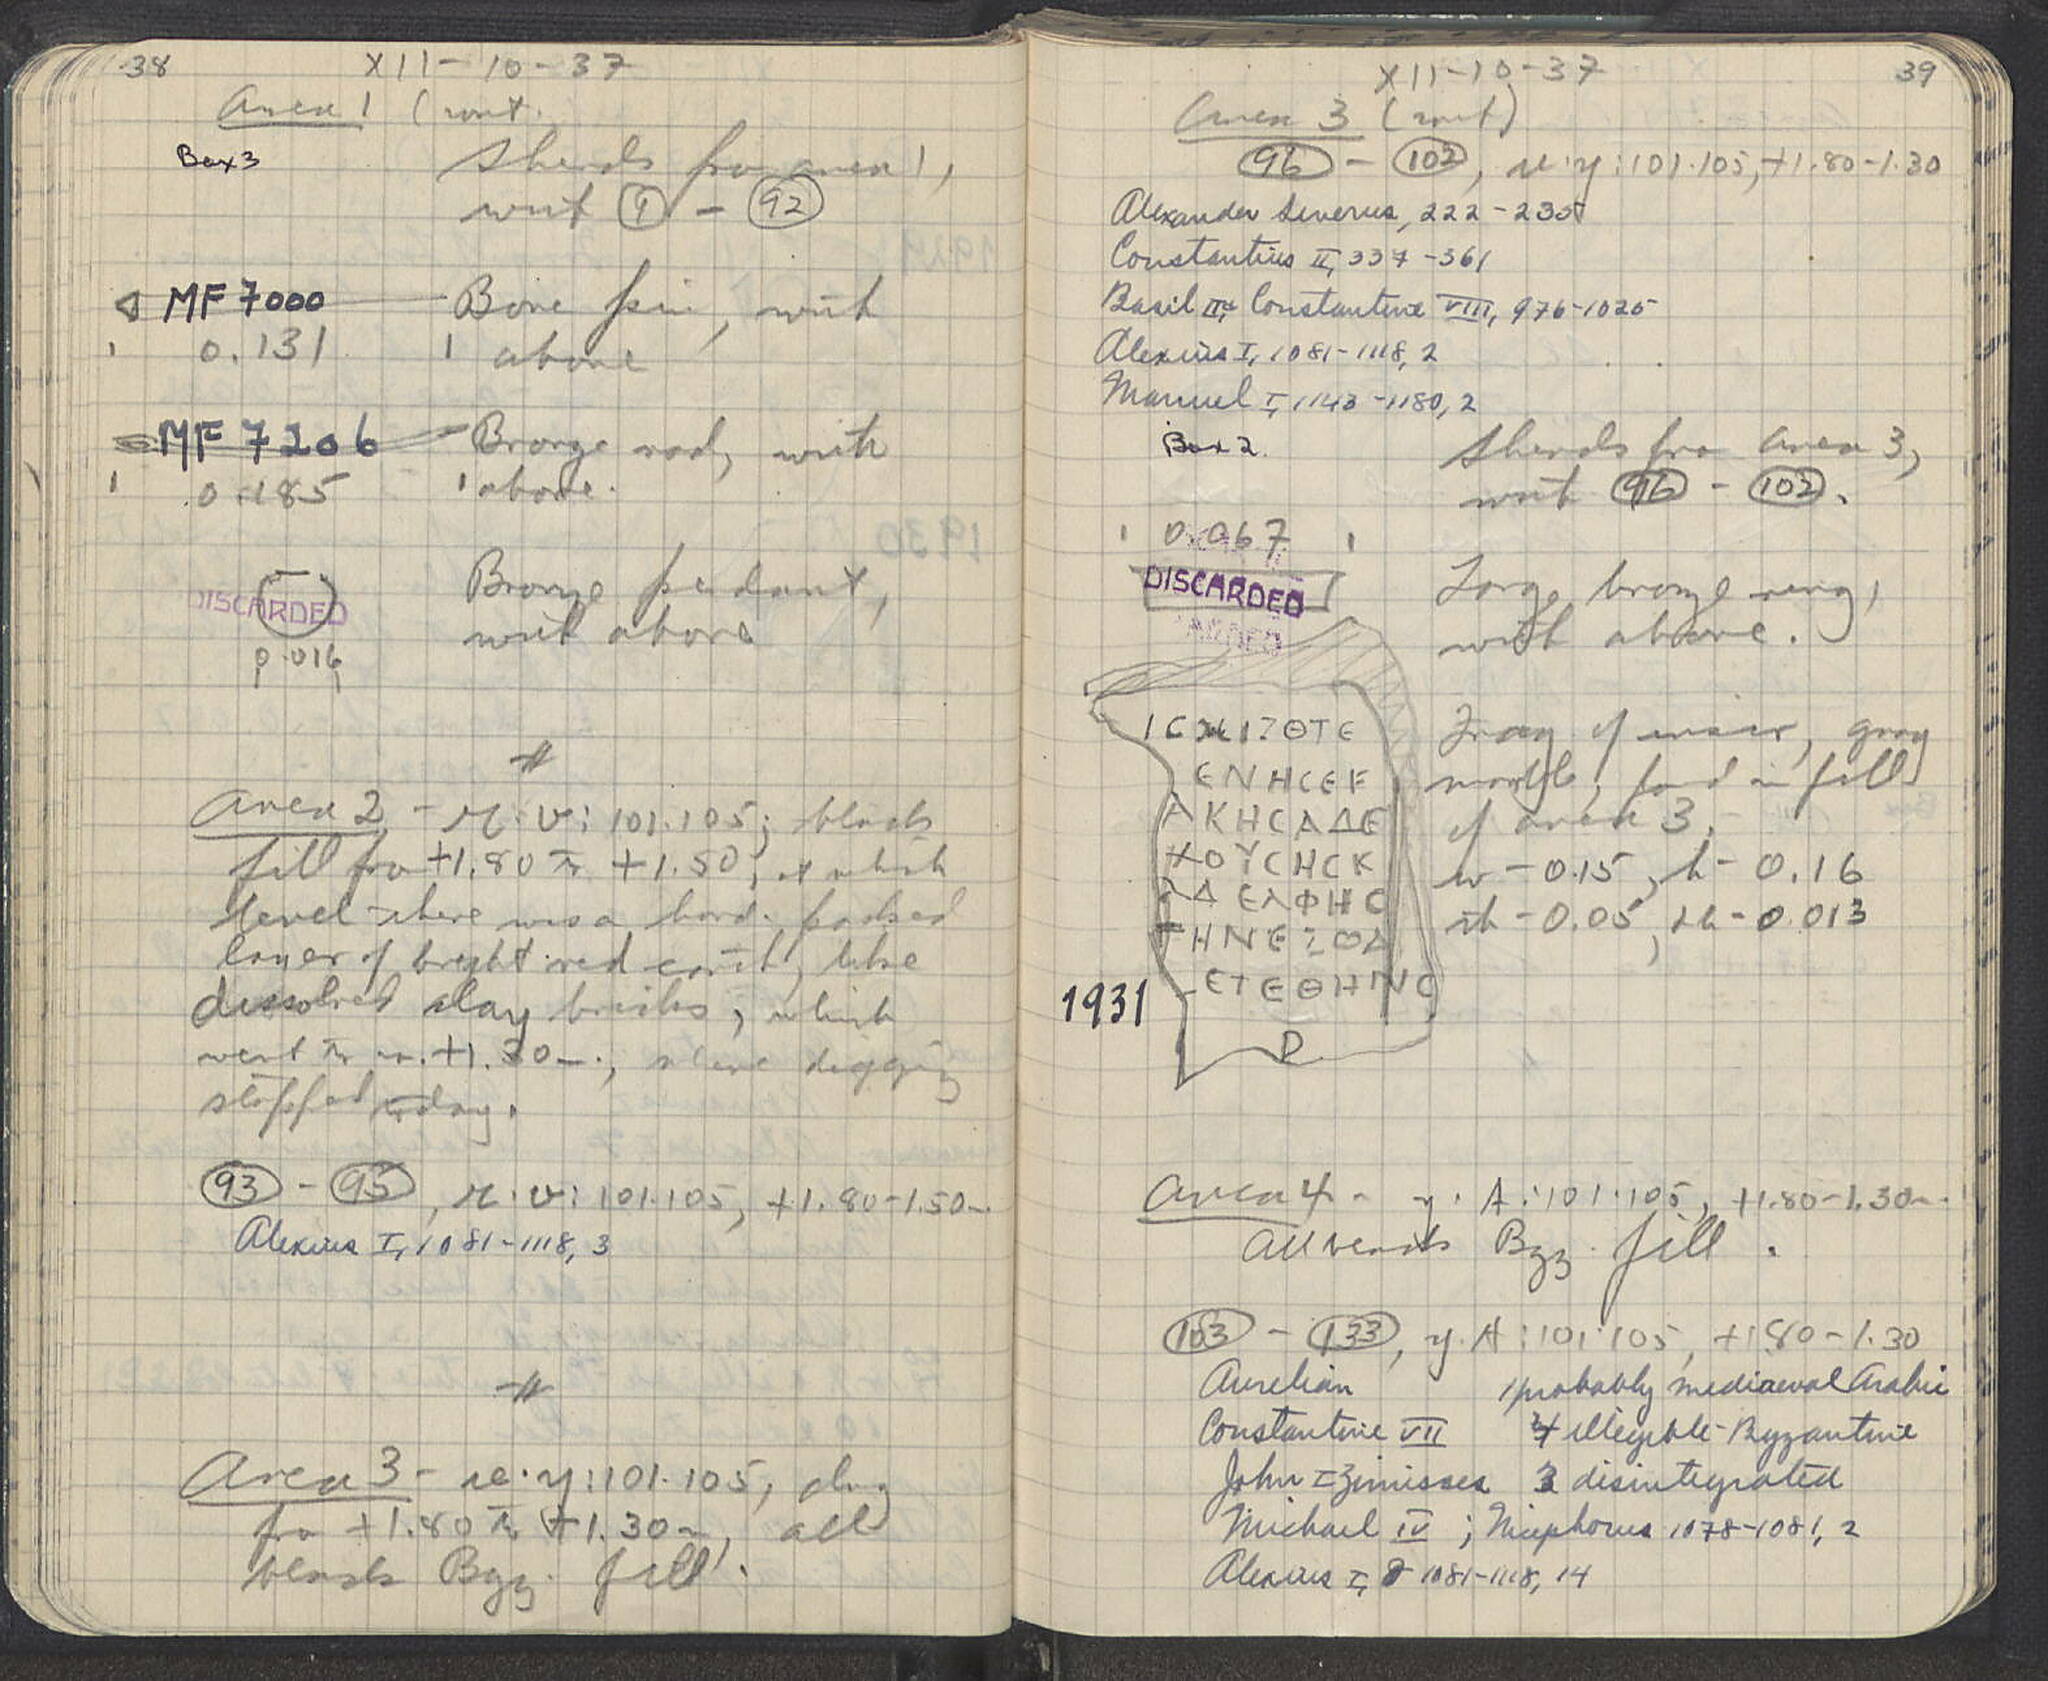 38
XII-10-37
Area 1 (cont.
Box 3
Sherds from area 1,
with 9 - 92
MF 7000
Bone pin, with
0.131
above
MF 7206
Bronze rod, with
0.185
above.
DISCARDED
Bronze pendant,
with above
0.016
Area 2 - : 101.105; black
fill from +1.80 to +1.50, at which
level there was a hard-packed
layer of bright red earth, like
dissolved clay bricks, which
went to +1.30 m., where digging
stopped today.
93 - 95, : 101.105, +1.80-1.50 m.
Alexius I, 1081-1118, 3
Area 3 - : 101.105, dug
from +1.80 to +1.30 m, all
black Byz. fill.
XII-10-37
39
Area 3 (cont)
96 - 102, : 101.105, +1.80-1.30
Alexander Severus, 222-235
Constantius II, 337-361
Basil II & Constantine VIII, 976-1025
Alexius I, 1081-1118, 2
Manuel I, 1143-1180, 2
Box 2.
Sherds from area 3,
with 96 - 102.
0.067
DISCARDED
Large bronze ring,
with above.
Frag of inscr, gray
marble, found in fill
of area 3.
w - 0.15, h - 0.16
th - 0.05, lh - 0.013
ΕΝΗСΕΓ
ΑΚΗСΑΔΕ
ΧΟΥСΗСΚ
ΛΔΕΛΦΗС
ΕΤΕΘΗΝС
1931
Area 4 - y.A: 101.105, +1.80-1.30 m.
All black Byz. fill.
103 - 133, y.A: 101.105, +1.80-1.30
Aurelian 1 probably mediaeval Arabic
Constantine VII illegible-Byzantine
John I Zimisces 3 disintegrated
Michael IV; Nicephorus 1078-1081, 2
Alexius I, 1081-1118, 14